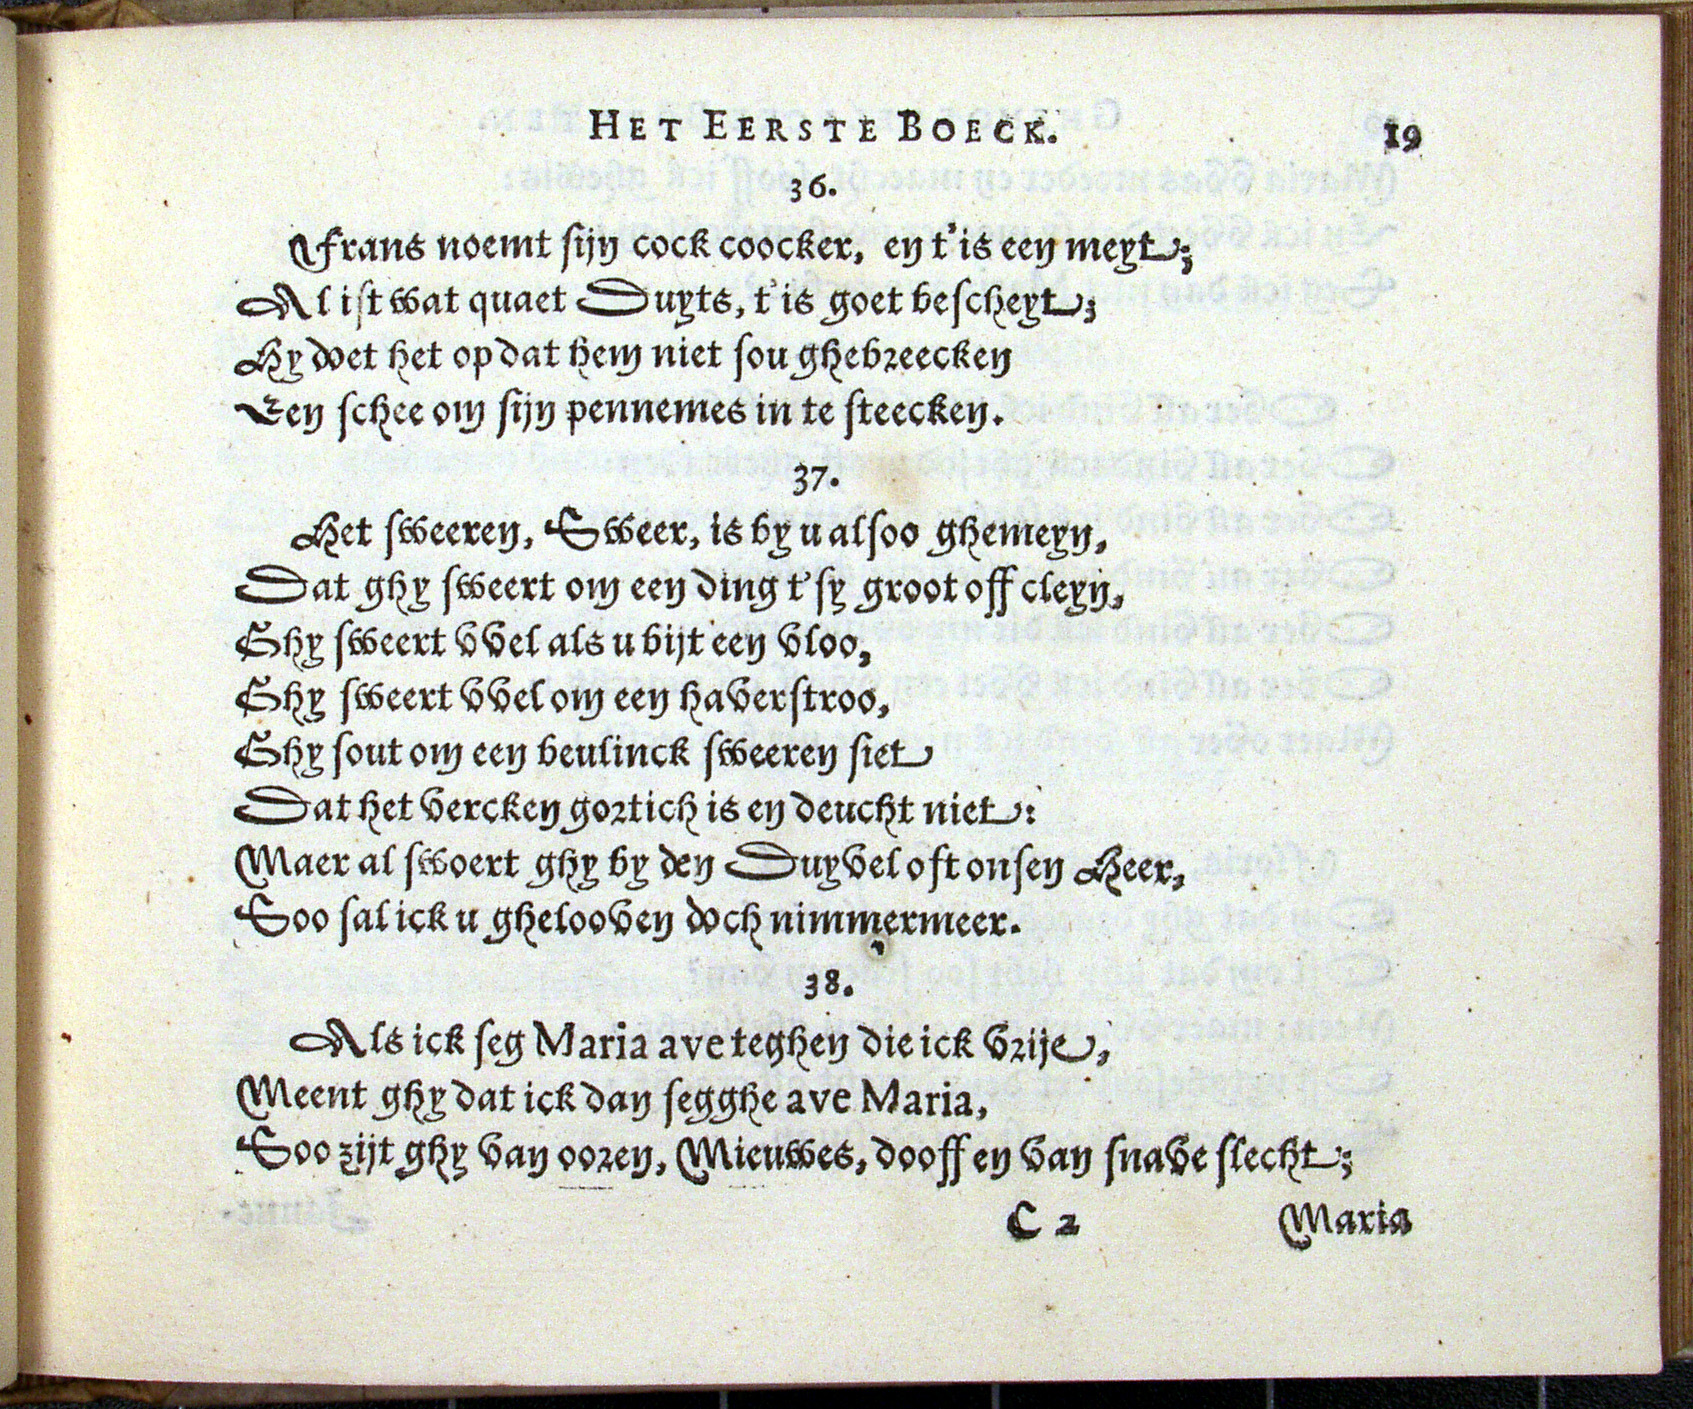 HET EERSTE BOECK. 19
36.
Frans noemt sijn cock coocker, en t'is een meyt;
Al ist wat quaet Duyts, t'is goet bescheyt;
Hy doet het op dat hem niet sou ghebreecken
Een schee om sijn pennemes in te steecken.
37.
Het sweeren, Sweer, is by u alsoo ghemeyn,
Dat ghy sweert om een ding t'sy groot off cleyn,
Ghy sweert vvel als u bijt een vloo,
Ghy sweert vvel om een haverstroo,
Ghy sout om een beulinck sweeren siet
Dat het vercken gortich is en deucht niet:
Maer al swoert ghy by den Duyvel oft onsen Heer,
Soo sal ick u ghelooven doch nimmermeer.
38.
Als ick seg Maria ave teghen die ick vrije,
Meent ghy dat ick dan segghe ave Maria,
Soo zijt ghy van ooren, Mieuwes, dooff en van snave slecht;
C 2 Maria